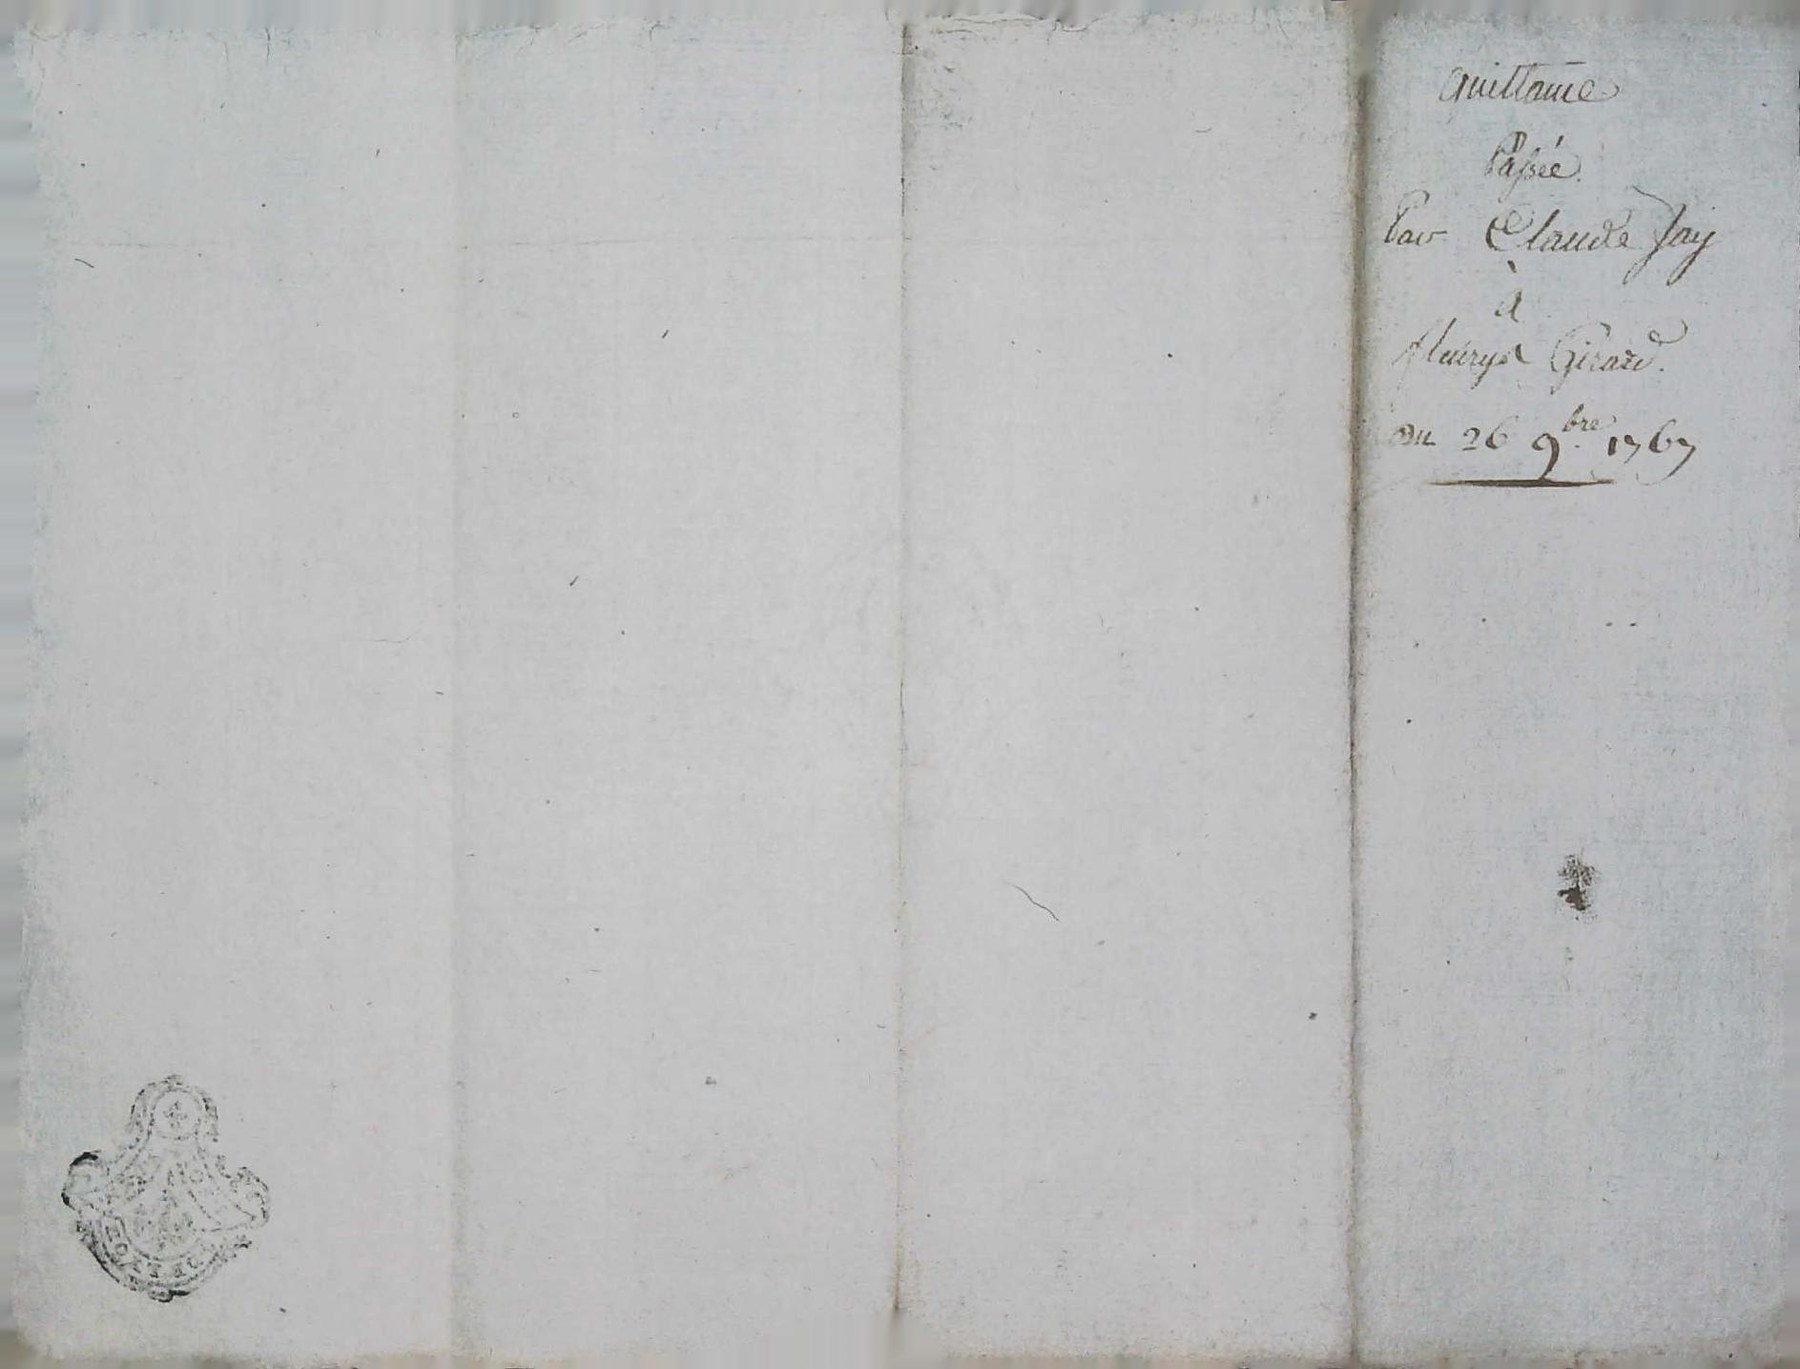 quittance
Passée
Par Claude Jay
à
fleurys Girard.
du 26 9.bre 1767